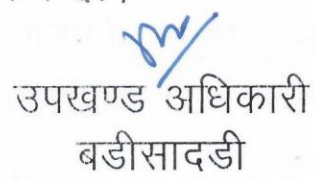 उपखण्ड अधिकारी
बडीसादडी